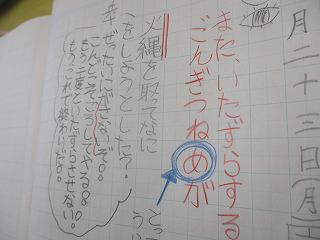 月二十三日(月)
また、いたずらする
ごんぎつねめが
とっ
うい
火縄を取ってなに
をしようとした?
幸 ぜったいにがさないぞ。
こんどこそころしてやる。
もう二度といたずらさせない。
もうこれで終わりだな。